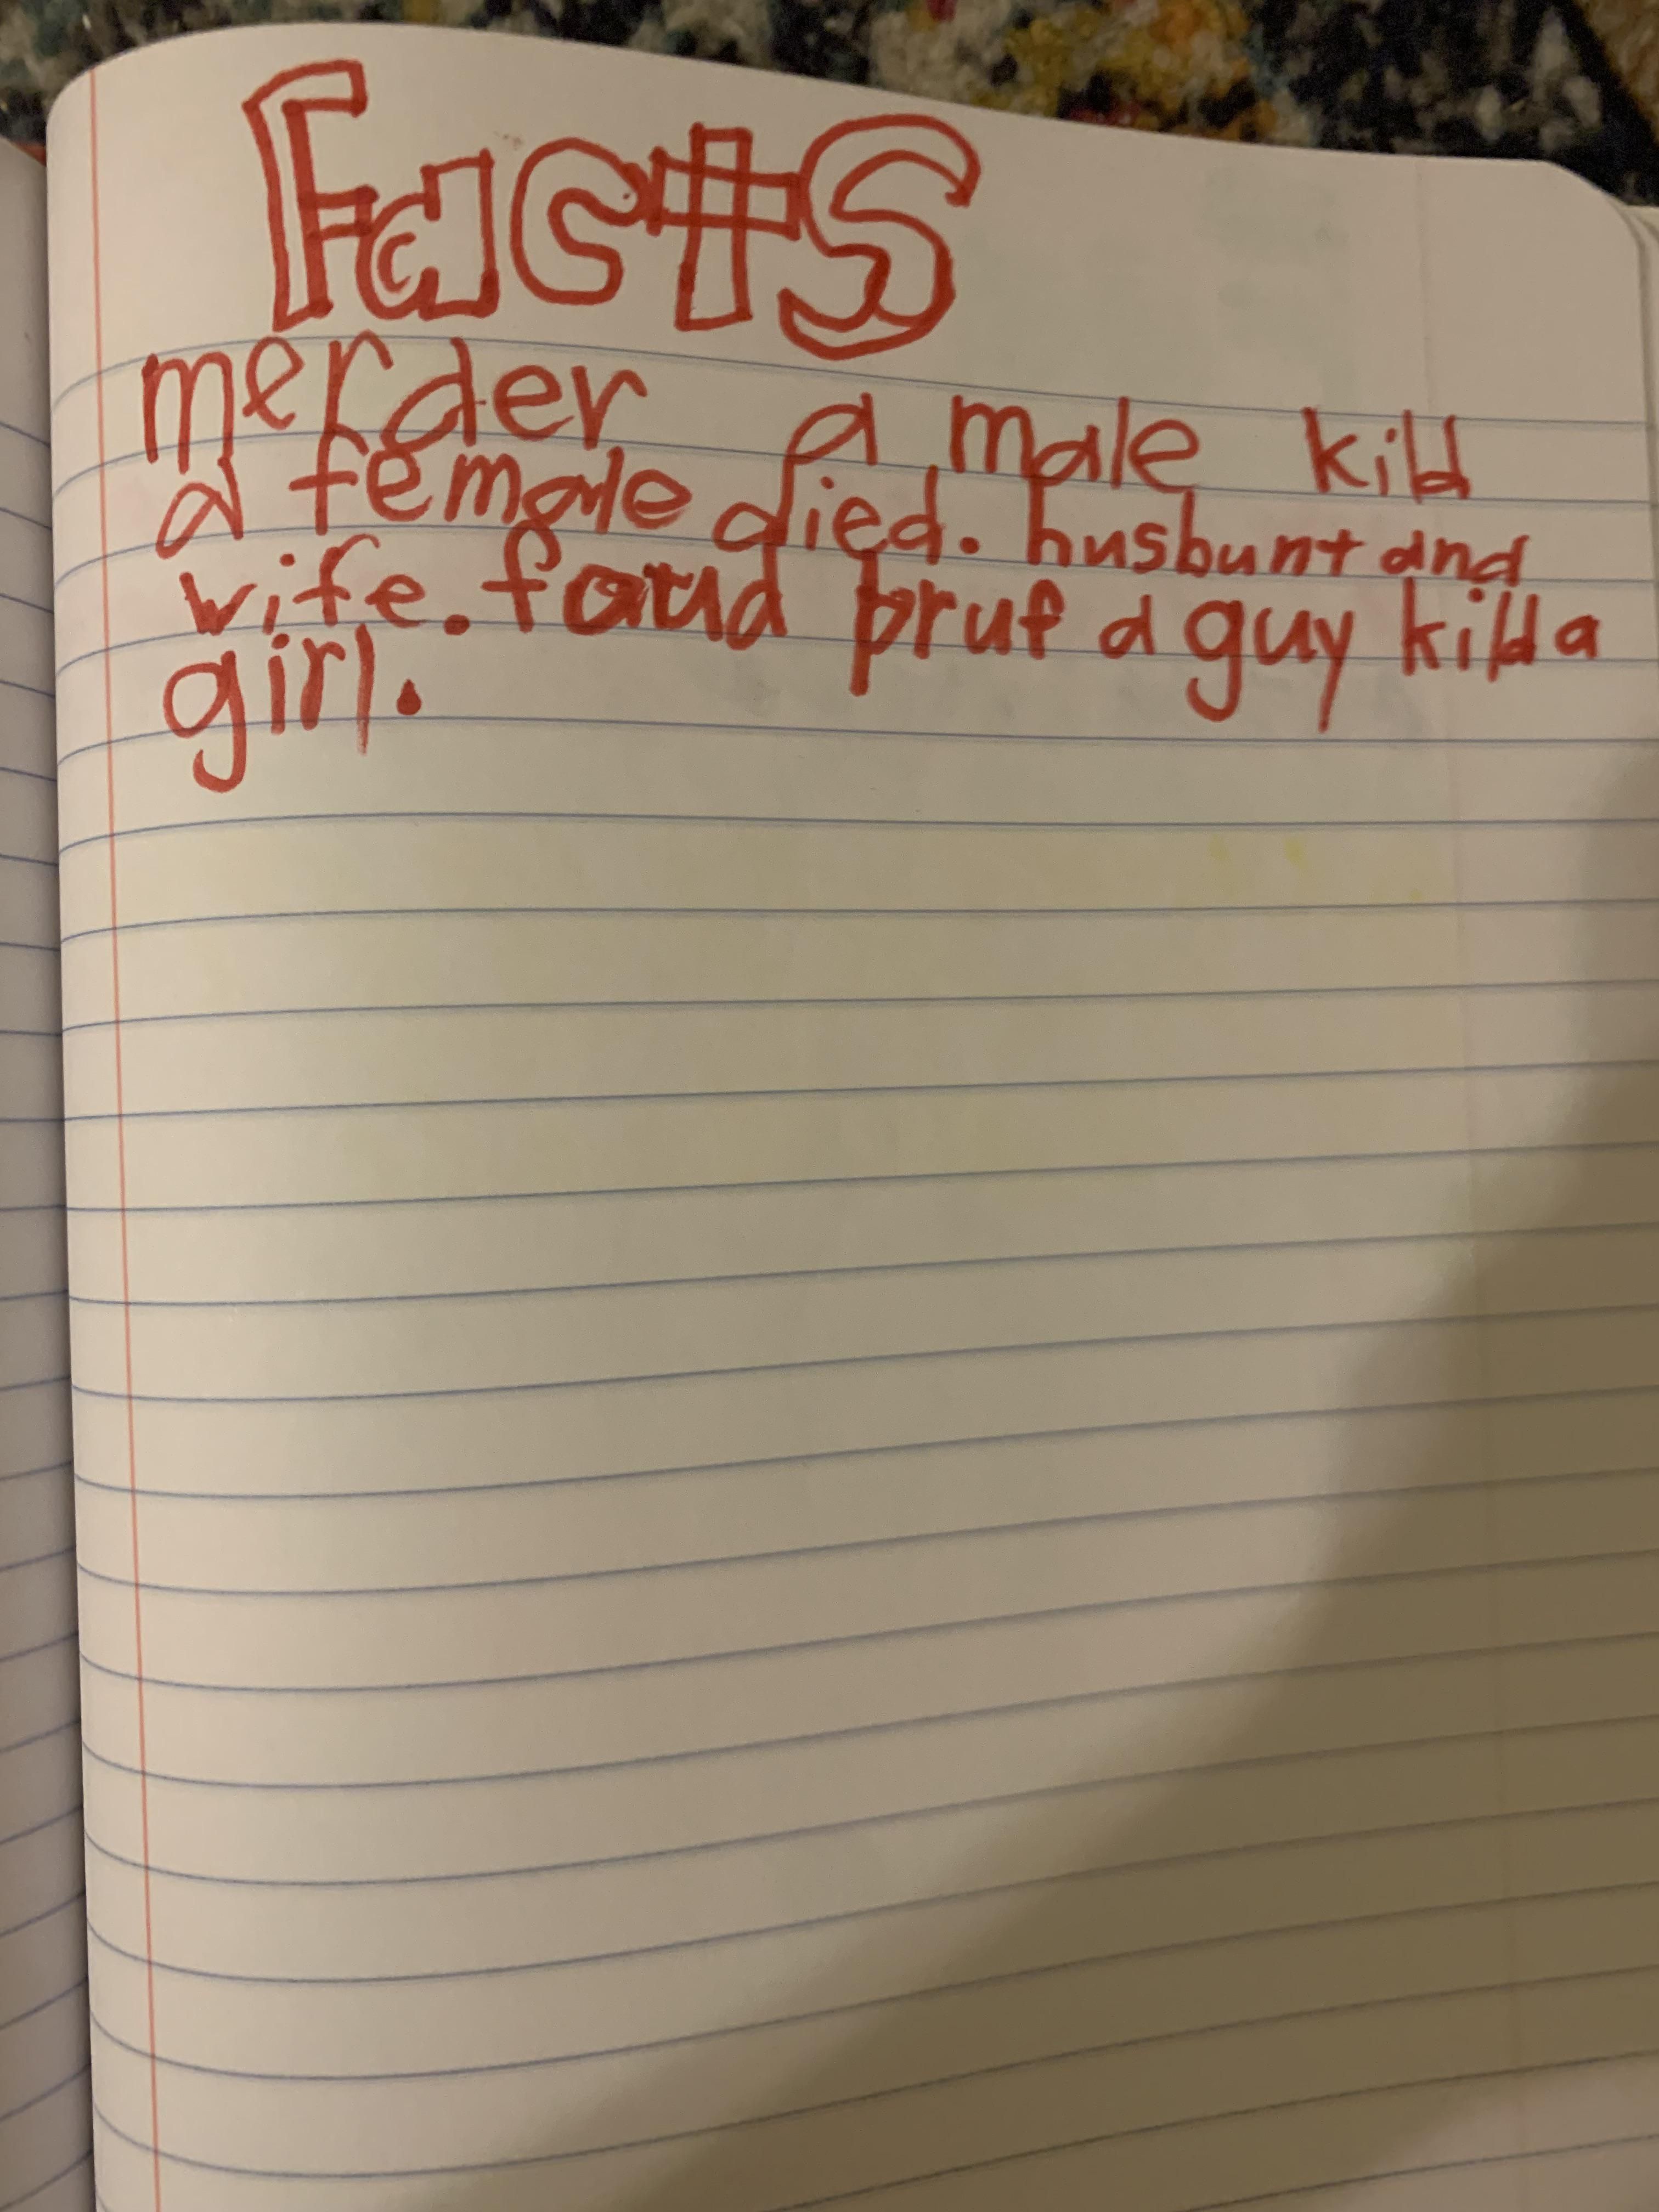 Facts
merder a male kild
a female died. husbunt and
wife. foud pruf a guy kild a
girl.